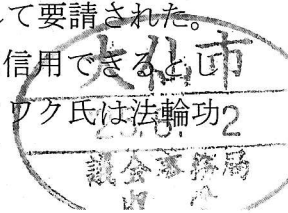 て要請された。
信用できるとし
ワク氏は法輪功
大仙市
2
議会事務局